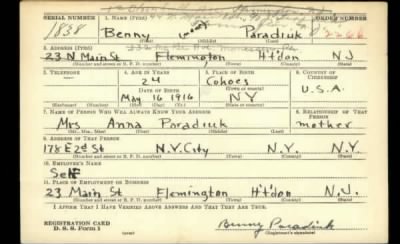 SERIAL NUMBER 1. NAME (Print) ORDER NUMBER
1838 Benny (none) Paradiuk 2266
(First) (Middle) (Last)
2. ADDRESS (Print)
23 N Main St Flemington Ht'don N J
(Number and street or R. F. D. number) (Town) (County) (State)
3. TELEPHONE 4. AGE IN YEARS 5. PLACE OF BIRTH 6. COUNTRY OF CITIZENSHIP
24 Cohoes
DATE OF BIRTH (Town or county)
May 16 1916 NY U.S.A.
(Exchange) (Number) (Mo.) (Day) (Yr.) (State or country)
7. NAME OF PERSON WHO WILL ALWAYS KNOW YOUR ADDRESS 8. RELATIONSHIP OF THAT PERSON
Mrs Anna Paradiuk mother
(Mr., Mrs., Miss) (First) (Middle) (Last)
9. ADDRESS OF THAT PERSON
178 E 2d St N.Y. City N.Y. N.Y.
(Number and street or R. F. D. number) (Town) (County) (State)
10. EMPLOYER'S NAME
Self
11. PLACE OF EMPLOYMENT OR BUSINESS
23 Main St Flemington Ht'don N.J.
(Number and street or R. F. D. number) (Town) (County) (State)
I AFFIRM THAT I HAVE VERIFIED ABOVE ANSWERS AND THAT THEY ARE TRUE.
REGISTRATION CARD
D. S. S. Form 1 Benny Paradiuk
(Registrant's signature)